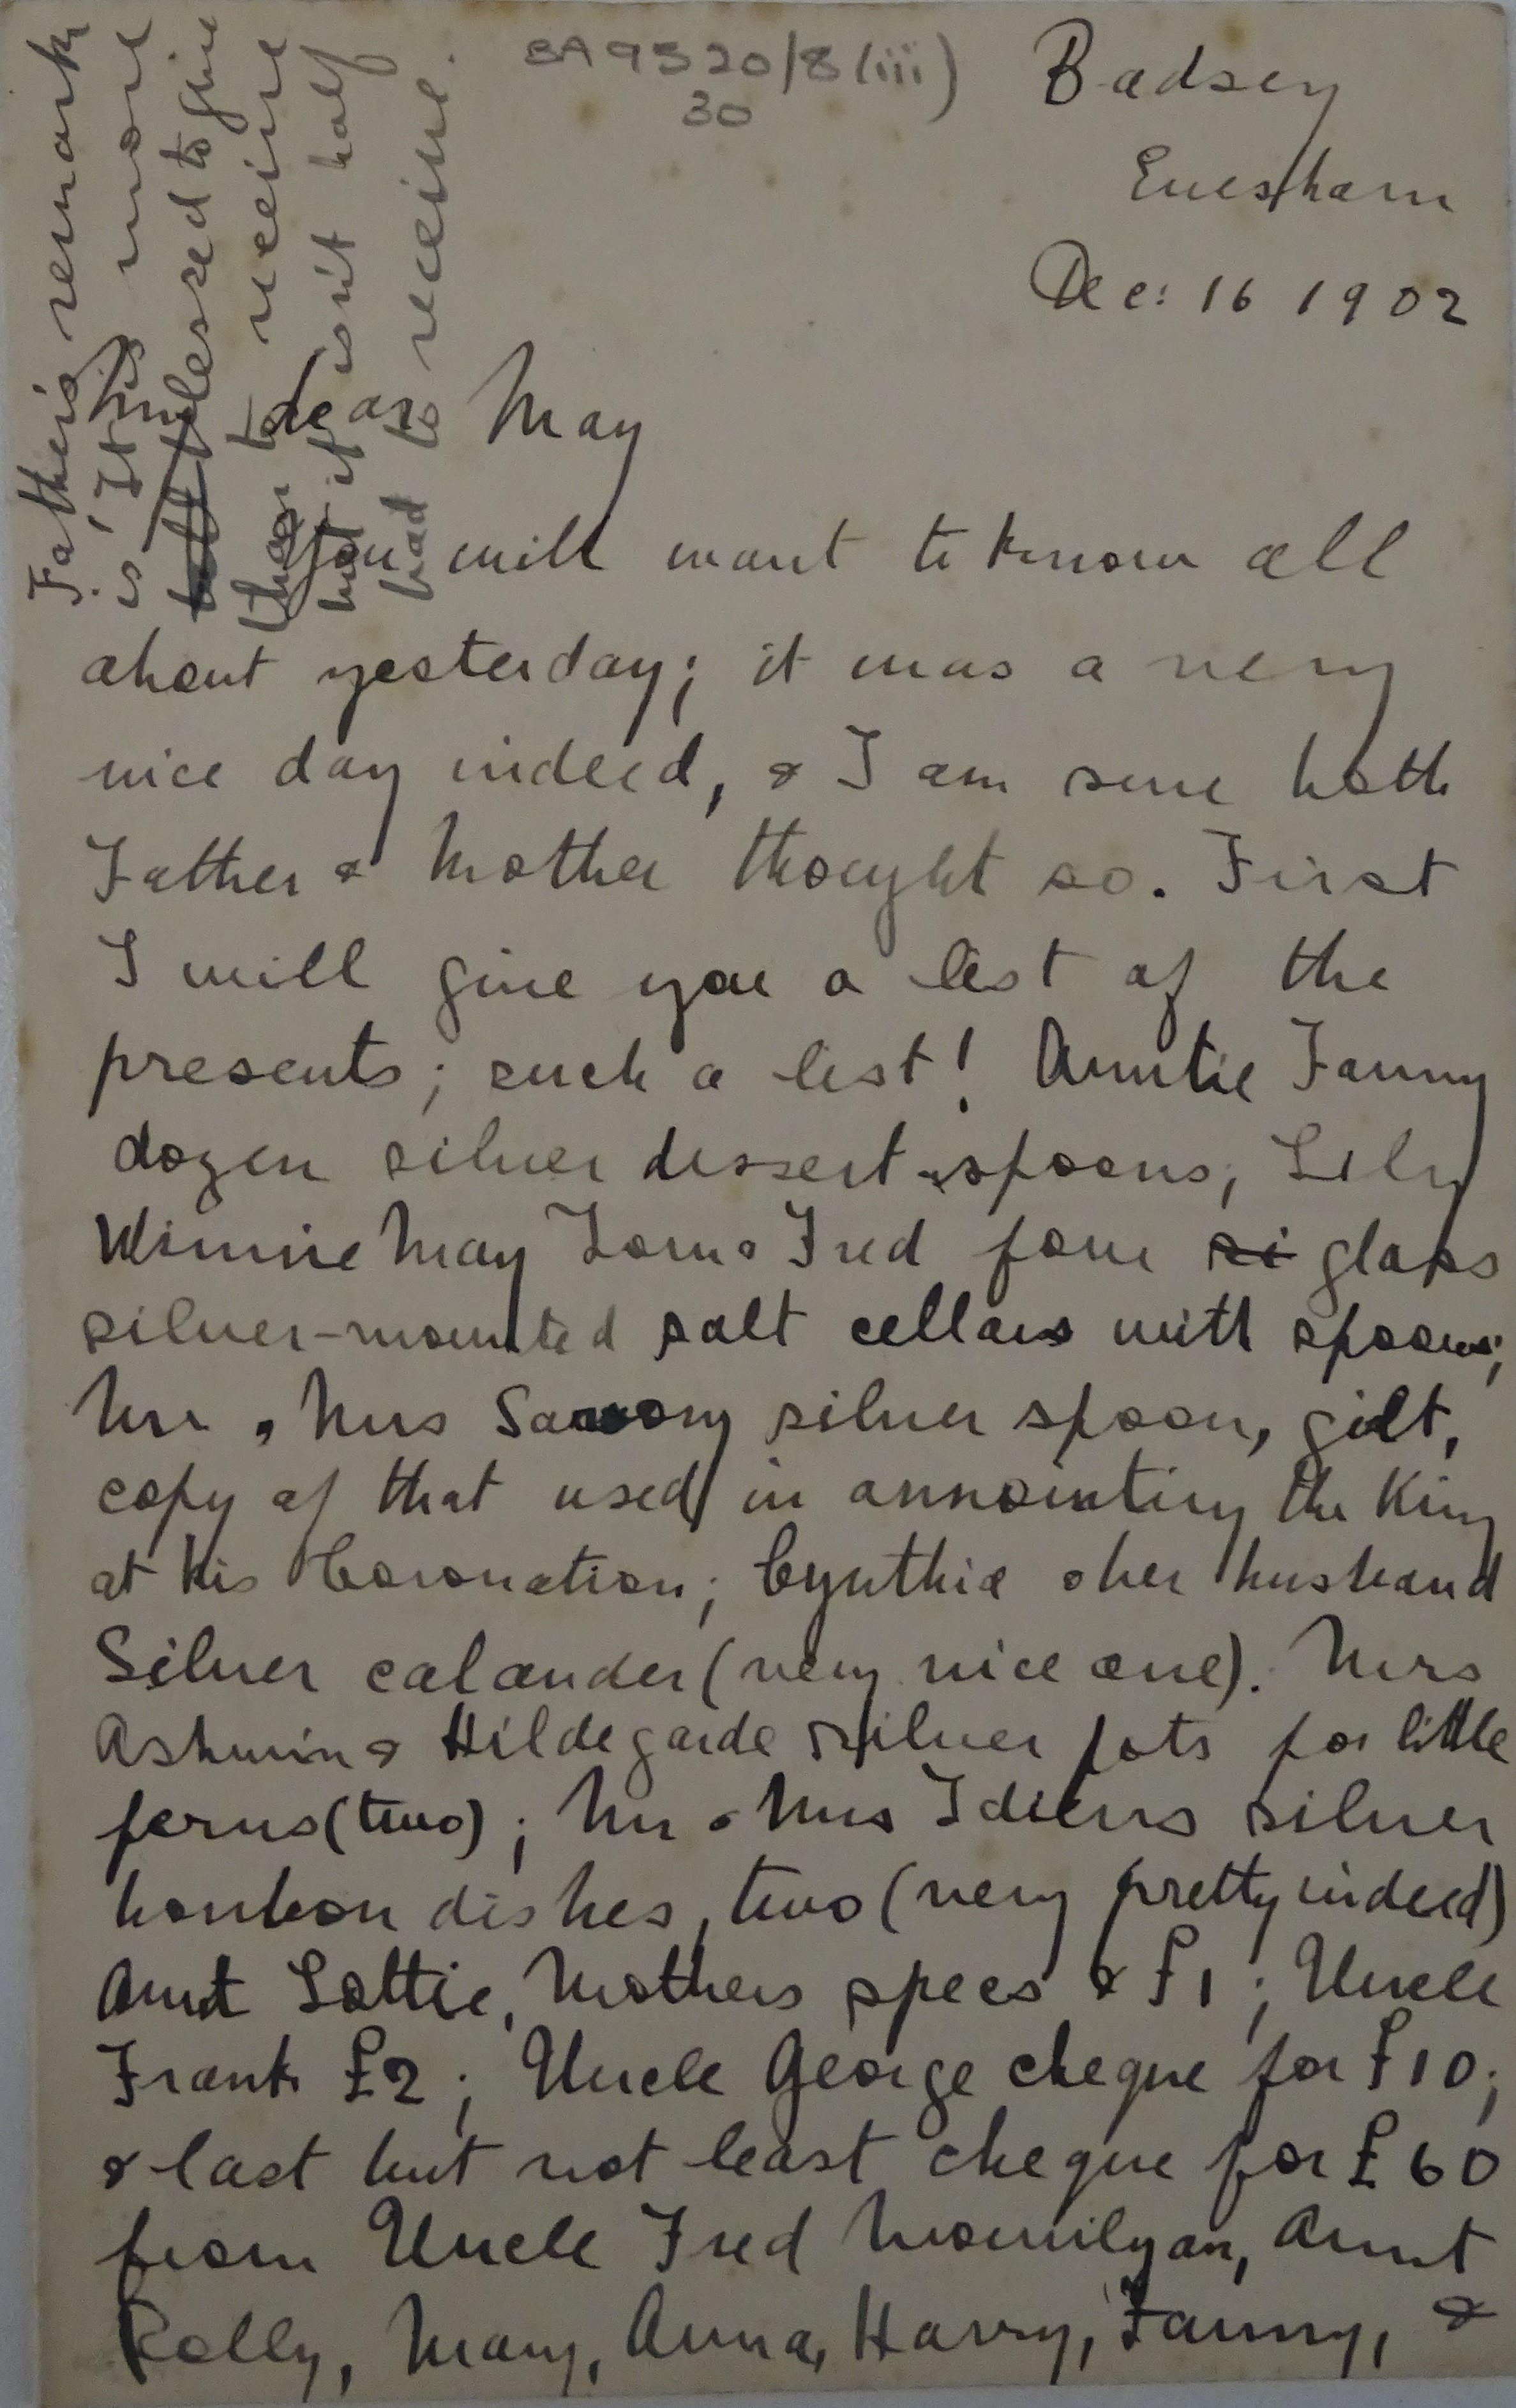 BA 9520/8(iii)
30
Badsey
Evesham
Dec: 16 1902
My dear May
You will want to know all
about yesterday; it was a very
nice day indeed, & I am sure both
Father & Mother thought so. First
I will give you a list of the
presents; such a list! Auntie Fanny
dozen silver dessert-spoons; Lily
Winnie May Tom & Fred four si glass
silver-mounted salt cellars with spoons;
Mr & Mrs Savory silver spoon, gilt,
copy of that used in annointing the King
at his Coronation; Cynthia & her husband
Silver calander (very nice one). Mrs
Ashwin & Hildegarde silver pots for little
ferns (two); Mr & Mrs Idiens silver
bonbon dishes, two (very pretty indeed)
Aunt Lottie, Mothers specs & £1; Uncle
Frank £2; Uncle George cheque for £10;
& last but not least cheque for £60
from Uncle Fred Mourilyan, Aunt
Polly, Mary, Anna, Harry, Fanny, &
Father's remark
is 'It is more
blessed to give
than to receive
but it isn't half
bad to receive.